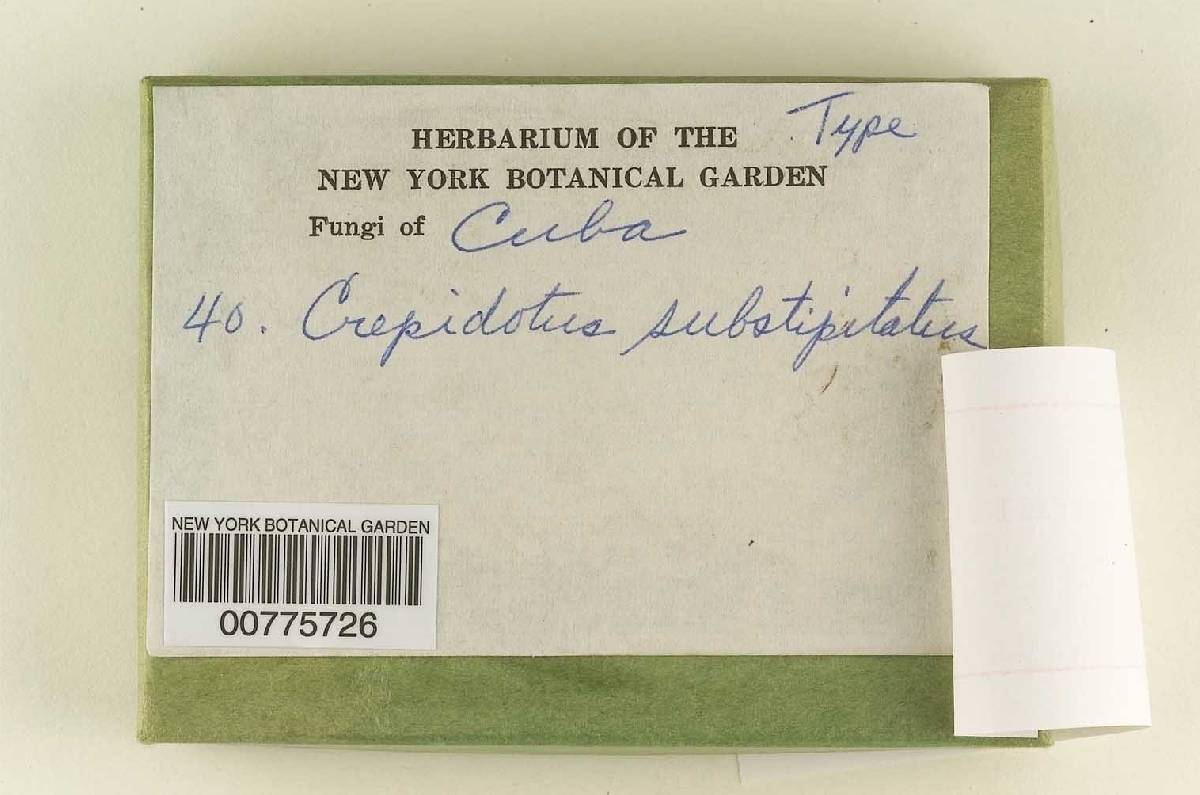 Type
HERBARIUM OF THE
NEW YORK BOTANICAL GARDEN
Fungi of Cuba
40. Crepidotus substipitatus
NEW YORK BOTANICAL GARDEN
00775726